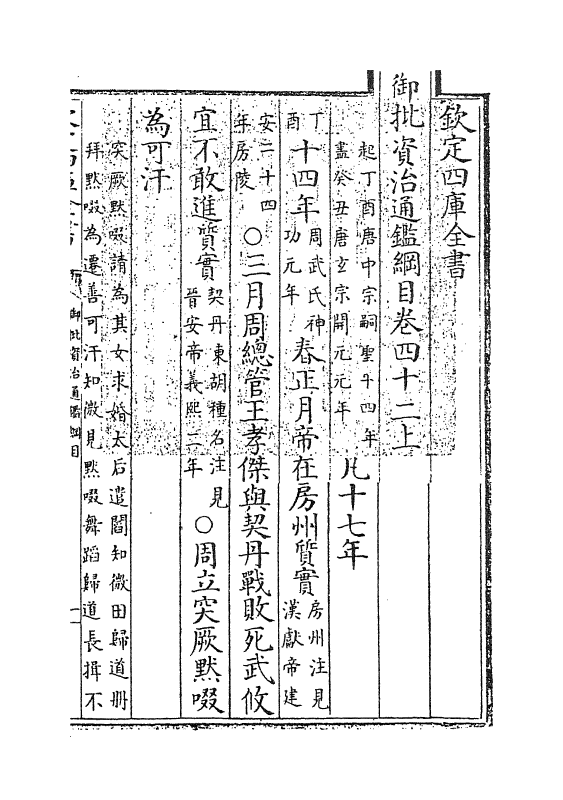 欽定四庫全書
御批資治通鑑綱目卷四十二上
起丁酉唐中宗嗣聖十四年
盡癸丑唐玄宗開元元年
凡十七年
丁酉
十四年
周武氏神
功元年
春正月帝在房州質實
房州注見
漢獻帝建
安二十四
年房陵
○三月周總管王孝傑與契丹戰敗死武攸
宜不敢進質實
契丹東胡種名注見
晉安帝義熙二年
○周立突厥默啜
為可汗
突厥默啜請為其女求婚太后遣閻知微田歸道冊
拜默啜為遷善可汗知微見默啜舞蹈歸道長揖不
御批資治通鑑綱目
一